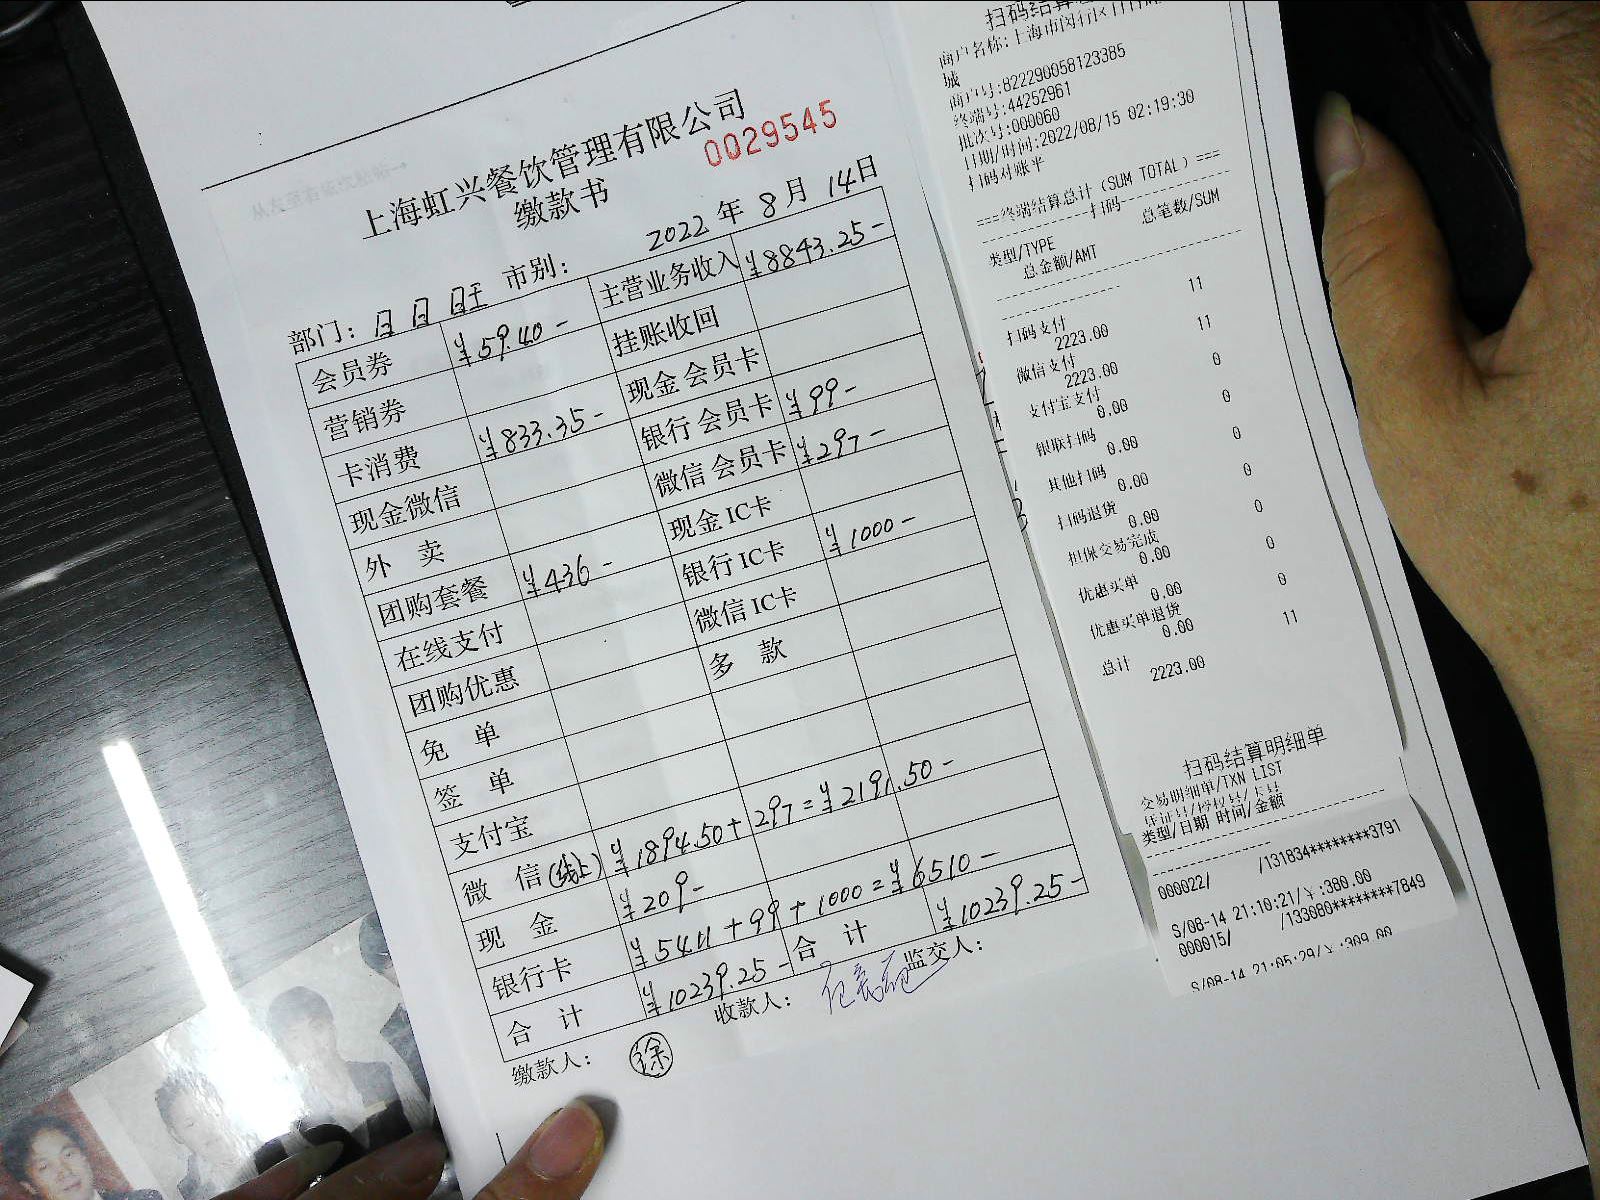 上海虹兴餐饮管理有限公司
缴款书
0029545
2022 年 8 月 14日
部门: 日日旺 市别:
会员券 ¥59.40- 主营业务收入 ¥8843.25-
营销券 挂账收回
卡消费 ¥833.35- 现金会员卡
现金微信 银行会员卡 ¥99-
外 卖 微信会员卡 ¥297-
团购套餐 ¥436- 现金IC卡
在线支付 银行IC卡 ¥1000-
团购优惠 微信IC卡
免 单 多 款
签 单
支付宝
微 信(线上) ¥1894.50+297=¥2191.50-
现 金 ¥209-
银行卡 ¥5411+99+1000=¥6510-
合 计 ¥10239.25- 合 计 ¥10239.25-
缴款人: 徐 收款人: 监交人:
扫码结算
商户名称:上海市闵行区
城
商户号:822290058123385
终端号:44252961
批次号:000060
日期/时间:2022/08/15 02:19:30
扫码对账平
===终端结算总计(SUM TOTAL)===
扫码
类型/TYPE 总笔数/SUM
总金额/AMT
扫码支付 11
2223.00
微信支付 11
2223.00
支付宝支付 0
0.00
银联扫码 0
0.00
其他扫码 0
0.00
扫码退货 0
0.00
担保交易完成 0
0.00
优惠买单 0
0.00
优惠买单退货 0
0.00
总计 11
2223.00
扫码结算明细单
交易明细单/TXN LIST
凭证号/授权号/卡号
类型/日期 时间/金额
000022/ /131834********3791
S/08-14 21:10:21/¥:380.00
000015/ /133080********7849
S/08-14 21:05:29/¥:309.00